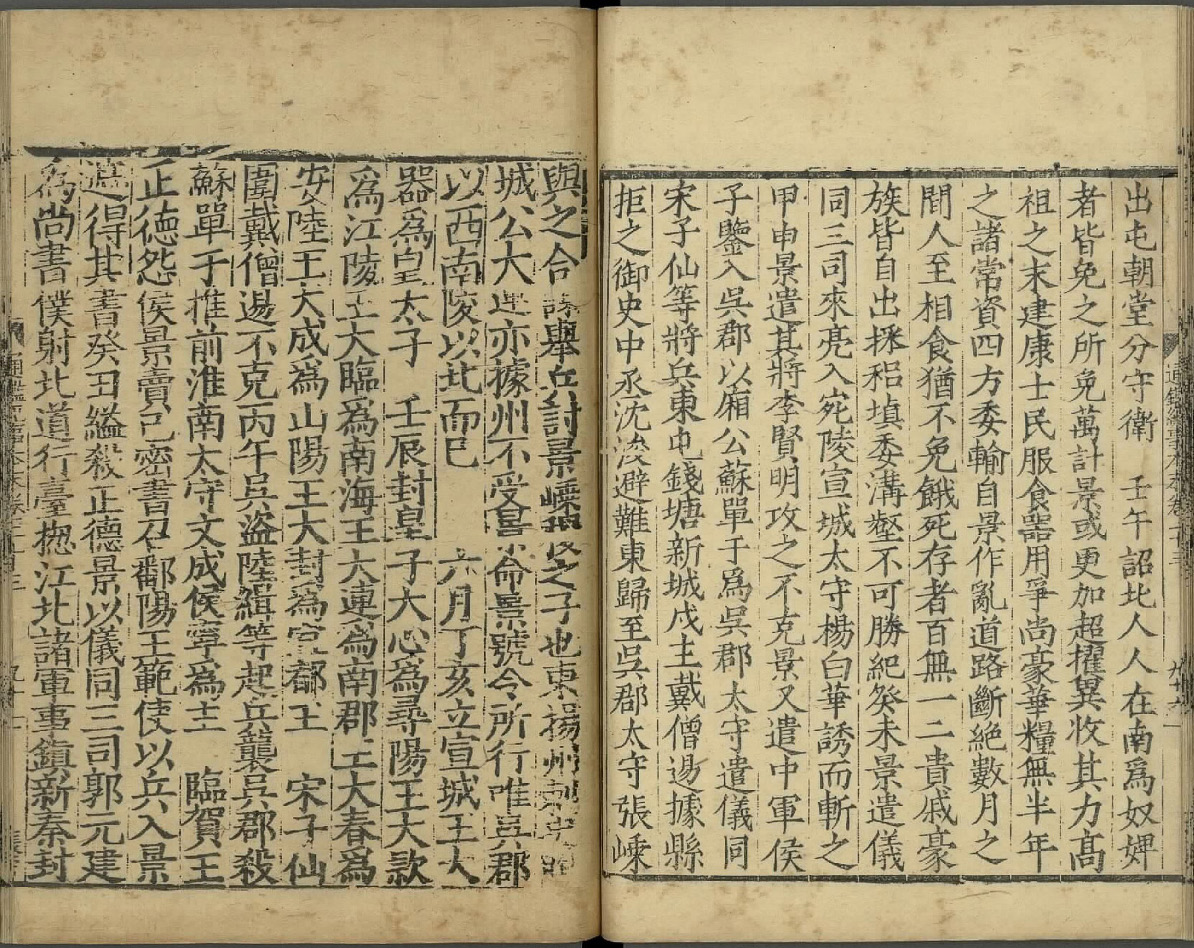 出屯朝堂分守衛　壬午詔北人人在南爲奴婢
者皆免之所免萬計景或更加超擢兾收其力髙
祖之末建康士民服食器用爭尚豪華糧無半年
之諸常資四方委輸自景作亂道路斷絶數月之
間人至相食猶不免餓死存者百無一二貴戚豪
族皆自出採稆塡委溝壑不可勝紀癸未景遣儀
同三司來亮入宛陵宣城太守楊白華誘而斬之
甲申景遣其將李賢明攻之不克景又遣中軍侯
子鑒入吳郡以廂公蘇單于爲吳郡太守遣儀同
宋子仙等將兵東屯錢塘新城戍主戴僧逷據縣
拒之御史中丞沈浚避難東歸至吳郡太守張嵊
與之合謀舉兵討景嵊稷之子也東揚州刺史臨
城公大連亦據州不受景命景號令所行唯吳郡
以西南陵以北而已　六月丁亥立宣城王大
器爲皇太子　壬辰封皇子大心爲尋陽王大款
爲江陵王大臨爲南海王大連爲南郡王大春爲
安陸王大成爲山陽王大封爲宜都王　宋子仙
圍戴僧逷不克丙午吳盜陸緝等起兵襲吳郡殺
蘇單于推前淮南太守文成侯寧爲主　臨賀王
正德怨侯景賣己密書召鄱陽王範使以兵入景
遮得其書癸丑縊殺正德景以儀同三司郭元建
爲尚書僕射北道行臺揔江北諸軍事鎮新秦封